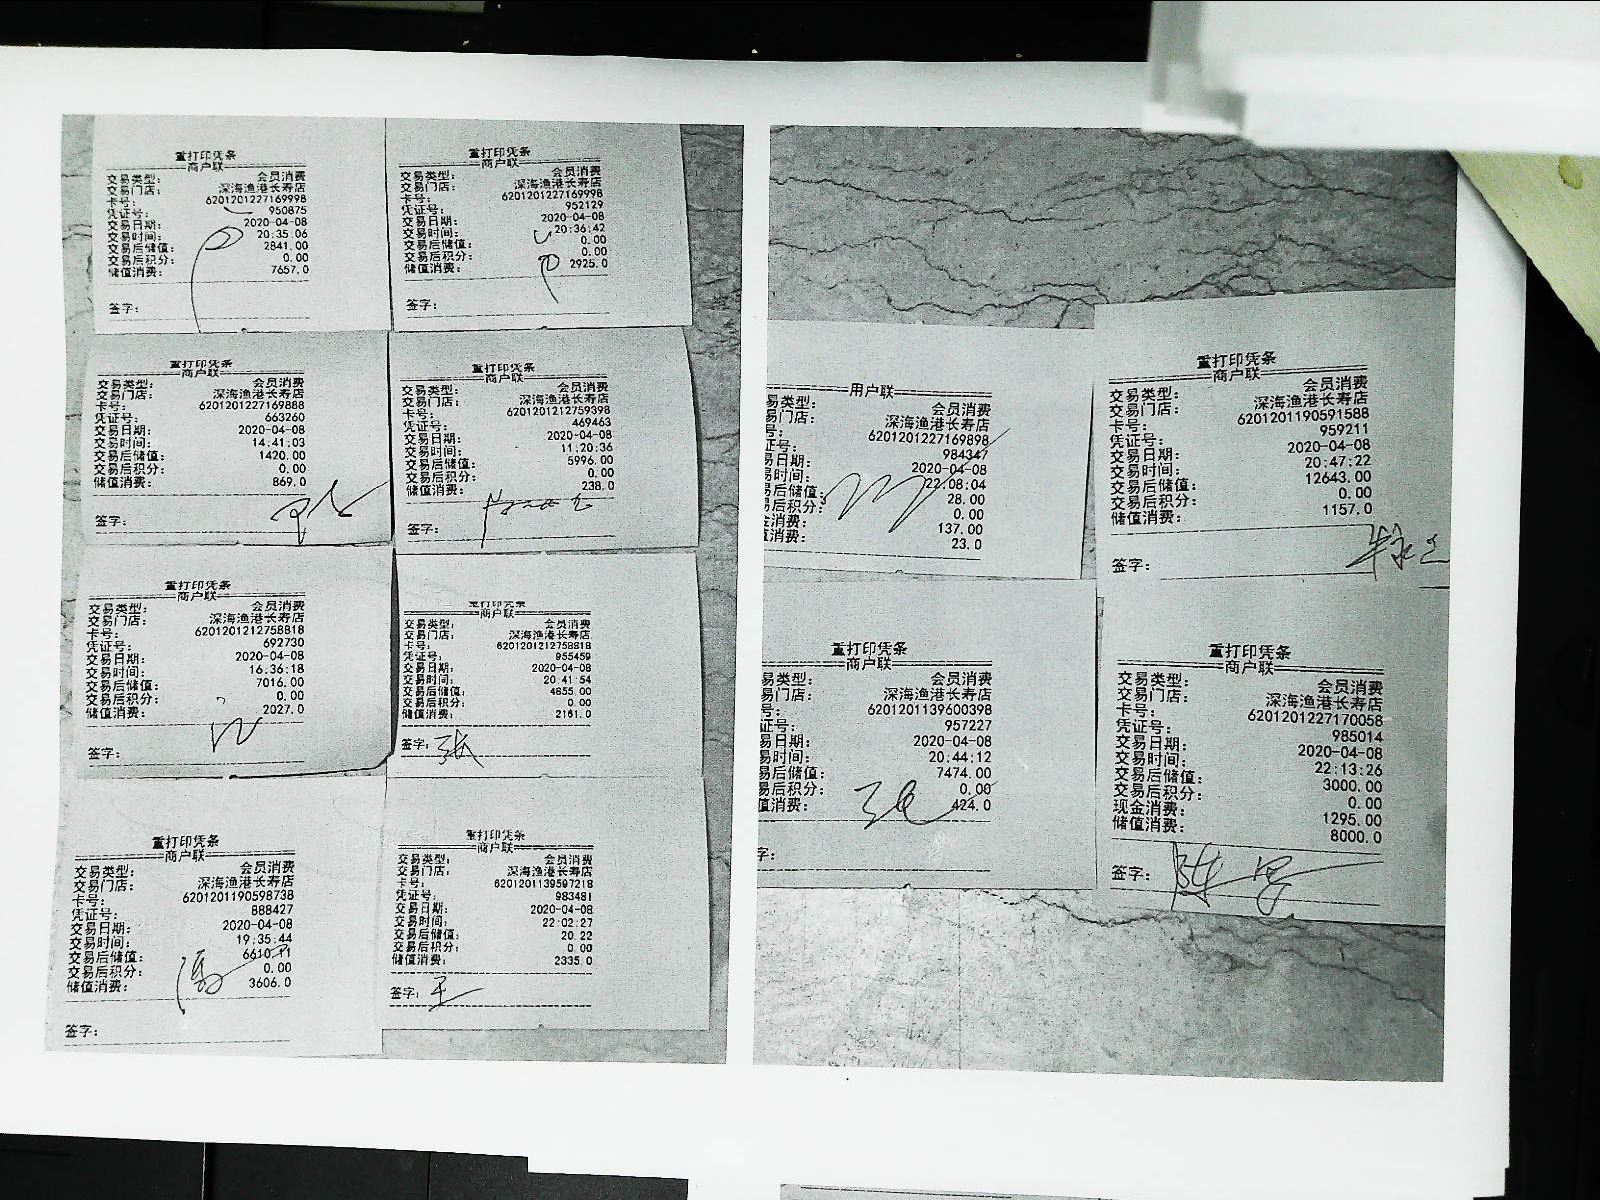 重打印凭条
商户联
交易类型: 会员消费
交易门店: 深海渔港长寿店
卡号: 6201201227169998
凭证号: 950875
交易日期: 2020-04-08
交易时间: 20:35:06
交易后储值: 2841.00
交易后积分: 0.00
储值消费: 7657.0
签字:
重打印凭条
商户联
交易类型: 会员消费
交易门店: 深海渔港长寿店
卡号: 6201201227169998
凭证号: 952129
交易日期: 2020-04-08
交易时间: 20:36:42
交易后储值: 0.00
交易后积分: 0.00
储值消费: 2925.0
签字:
重打印凭条
商户联
交易类型: 会员消费
交易门店: 深海渔港长寿店
卡号: 6201201227169888
凭证号: 663260
交易日期: 2020-04-08
交易时间: 14:41:03
交易后储值: 1420.00
交易后积分: 0.00
储值消费: 869.0
签字:
重打印凭条
商户联
交易类型: 会员消费
交易门店: 深海渔港长寿店
卡号: 6201201212759398
凭证号: 469463
交易日期: 2020-04-08
交易时间: 11:20:36
交易后储值: 5996.00
交易后积分: 0.00
储值消费: 238.0
签字:
重打印凭条
商户联
交易类型: 会员消费
交易门店: 深海渔港长寿店
卡号: 6201201212758818
凭证号: 692730
交易日期: 2020-04-08
交易时间: 16:36:18
交易后储值: 7016.00
交易后积分: 0.00
储值消费: 2027.0
签字:
重打印凭条
商户联
交易类型: 会员消费
交易门店: 深海渔港长寿店
卡号: 6201201212758818
凭证号: 955459
交易日期: 2020-04-08
交易时间: 20:41:54
交易后储值: 4855.00
交易后积分: 0.00
储值消费: 2161.0
签字: 张
重打印凭条
商户联
交易类型: 会员消费
交易门店: 深海渔港长寿店
卡号: 6201201190598738
凭证号: 888427
交易日期: 2020-04-08
交易时间: 19:35:44
交易后储值: 6610.11
交易后积分: 0.00
储值消费: 3606.0
签字:
重打印凭条
商户联
交易类型: 会员消费
交易门店: 深海渔港长寿店
卡号: 6201201139597218
凭证号: 983481
交易日期: 2020-04-08
交易时间: 22:02:27
交易后储值: 20.22
交易后积分: 0.00
储值消费: 2335.0
签字: 王
用户联
易类型: 会员消费
易门店: 深海渔港长寿店
号: 6201201227169898
证号: 984347
易日期: 2020-04-08
易时间: 22:08:04
易后储值: 28.00
易后积分: 0.00
金消费: 137.00
值消费: 23.0
重打印凭条
商户联
交易类型: 会员消费
交易门店: 深海渔港长寿店
卡号: 6201201190591588
凭证号: 959211
交易日期: 2020-04-08
交易时间: 20:47:22
交易后储值: 12643.00
交易后积分: 0.00
储值消费: 1157.0
签字:
重打印凭条
商户联
易类型: 会员消费
易门店: 深海渔港长寿店
号: 6201201139600398
证号: 957227
易日期: 2020-04-08
易时间: 20:44:12
易后储值: 7474.00
易后积分: 0.00
值消费: 424.0
字:
重打印凭条
商户联
交易类型: 会员消费
交易门店: 深海渔港长寿店
卡号: 6201201227170058
凭证号: 985014
交易日期: 2020-04-08
交易时间: 22:13:26
交易后储值: 3000.00
交易后积分: 0.00
现金消费: 1295.00
储值消费: 8000.0
签字: